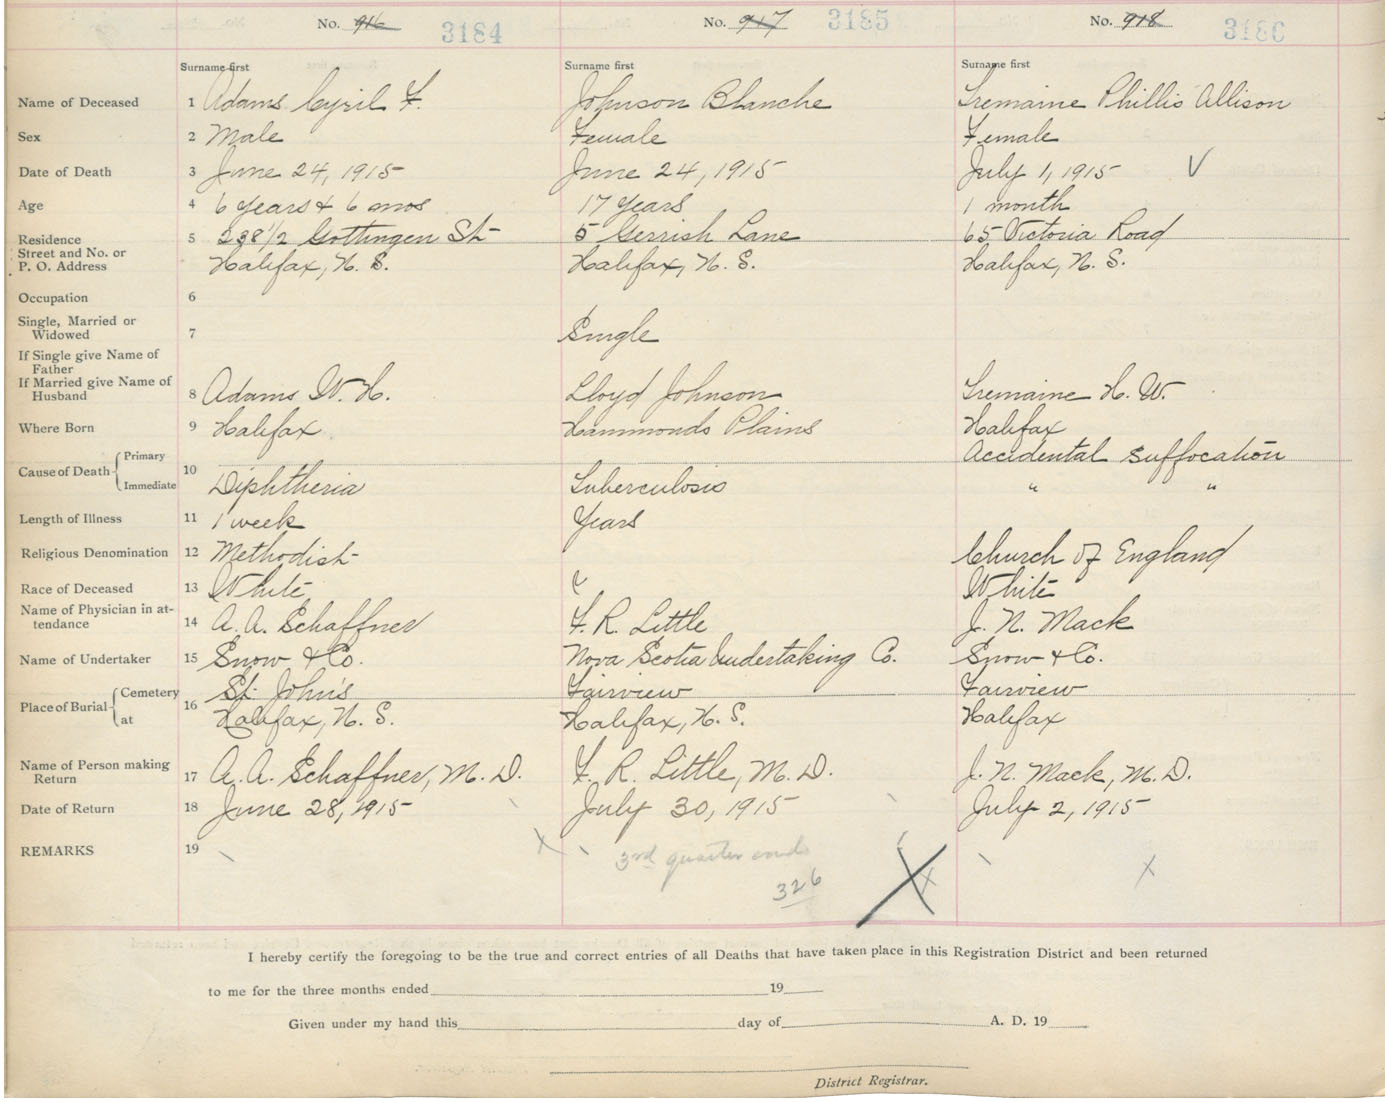 No. 916 3184 No. 917 3185 No. 918 3186
Surname first Surname first Surname first
Name of Deceased 1 Adams Cyril F. Johnson Blanche Tremaine Phillis Allison
Sex 2 Male Female Female
Date of Death 3 June 24, 1915 June 24, 1915 July 1, 1915
Age 4 6 years & 6 mos 17 years 1 month
Residence 5 238 1/2 Gottingen St 5 Gerrish Lane 65 Victoria Road
Street and No. or
P. O. Address Halifax, N. S. Halifax, N. S. Halifax, N. S.
Occupation 6
Single, Married or
Widowed 7 Single
If Single give Name of
Father
If Married give Name of
Husband 8 Adams W. H. Lloyd Johnson Tremaine H. W.
Where Born 9 Halifax Hammonds Plains Halifax
Cause of Death Primary 10 Accidental suffocation
Immediate Diphtheria Tuberculosis " "
Length of Illness 11 1 week Years
Religious Denomination 12 Methodist Church of England
Race of Deceased 13 White White
Name of Physician in at-
tendance 14 A. A. Schaffner F. R. Little J. N. Mack
Name of Undertaker 15 Snow & Co. Nova Scotia Undertaking Co. Snow & Co.
Place of Burial Cemetery 16 St. John's Fairview Fairview
at Halifax, N. S. Halifax, N. S. Halifax
Name of Person making
Return 17 A. A. Schaffner, M. D. F. R. Little, M. D. J. N. Mack, M. D.
Date of Return 18 June 28, 1915 July 30, 1915 July 2, 1915
REMARKS 19 3rd quarter ends
326
I hereby certify the foregoing to be the true and correct entries of all Deaths that have taken place in this Registration District and been returned
to me for the three months ended 19
Given under my hand this day of A. D. 19
District Registrar.